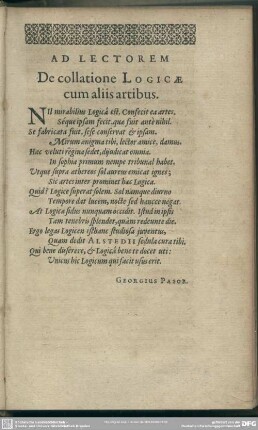 AD LECTOREM
De collatione LOGICÆ
cum aliis artibus.
NIl mirabilius Logicâ est. Confecit ea artes,
Séque ipsam fecit, quæ fuit antè nihil.
Et fabricata fuit, sese confirmat & ipsam.
Mirum ænigma tibi, lector amice, damus.
Hæc veluti regina sedet, dijudicat omnia.
In sophia primum nempe tribunal habet.
Utque supra æthereos sol aureus emicat ignes;
Sic artes inter prominet hæc Logica.
Quid? Logica superat solem. Sol namque diurno
Tempore dat lucem, nocte sed hancce negat.
At Logicæ sidus nunquam occidit. Istud in ipsis
Tam tenebris splendet, quàm redeunte die.
Ergo legas Logicen isthanc studiosa juventus,
Quam dedit ALSTEDII sedula cura tibi.
Qui bene disserere, & Logicâ bene te docet uti:
Unicus hic Logicum qui facit usus erit.
GEORGIUS PASOR.